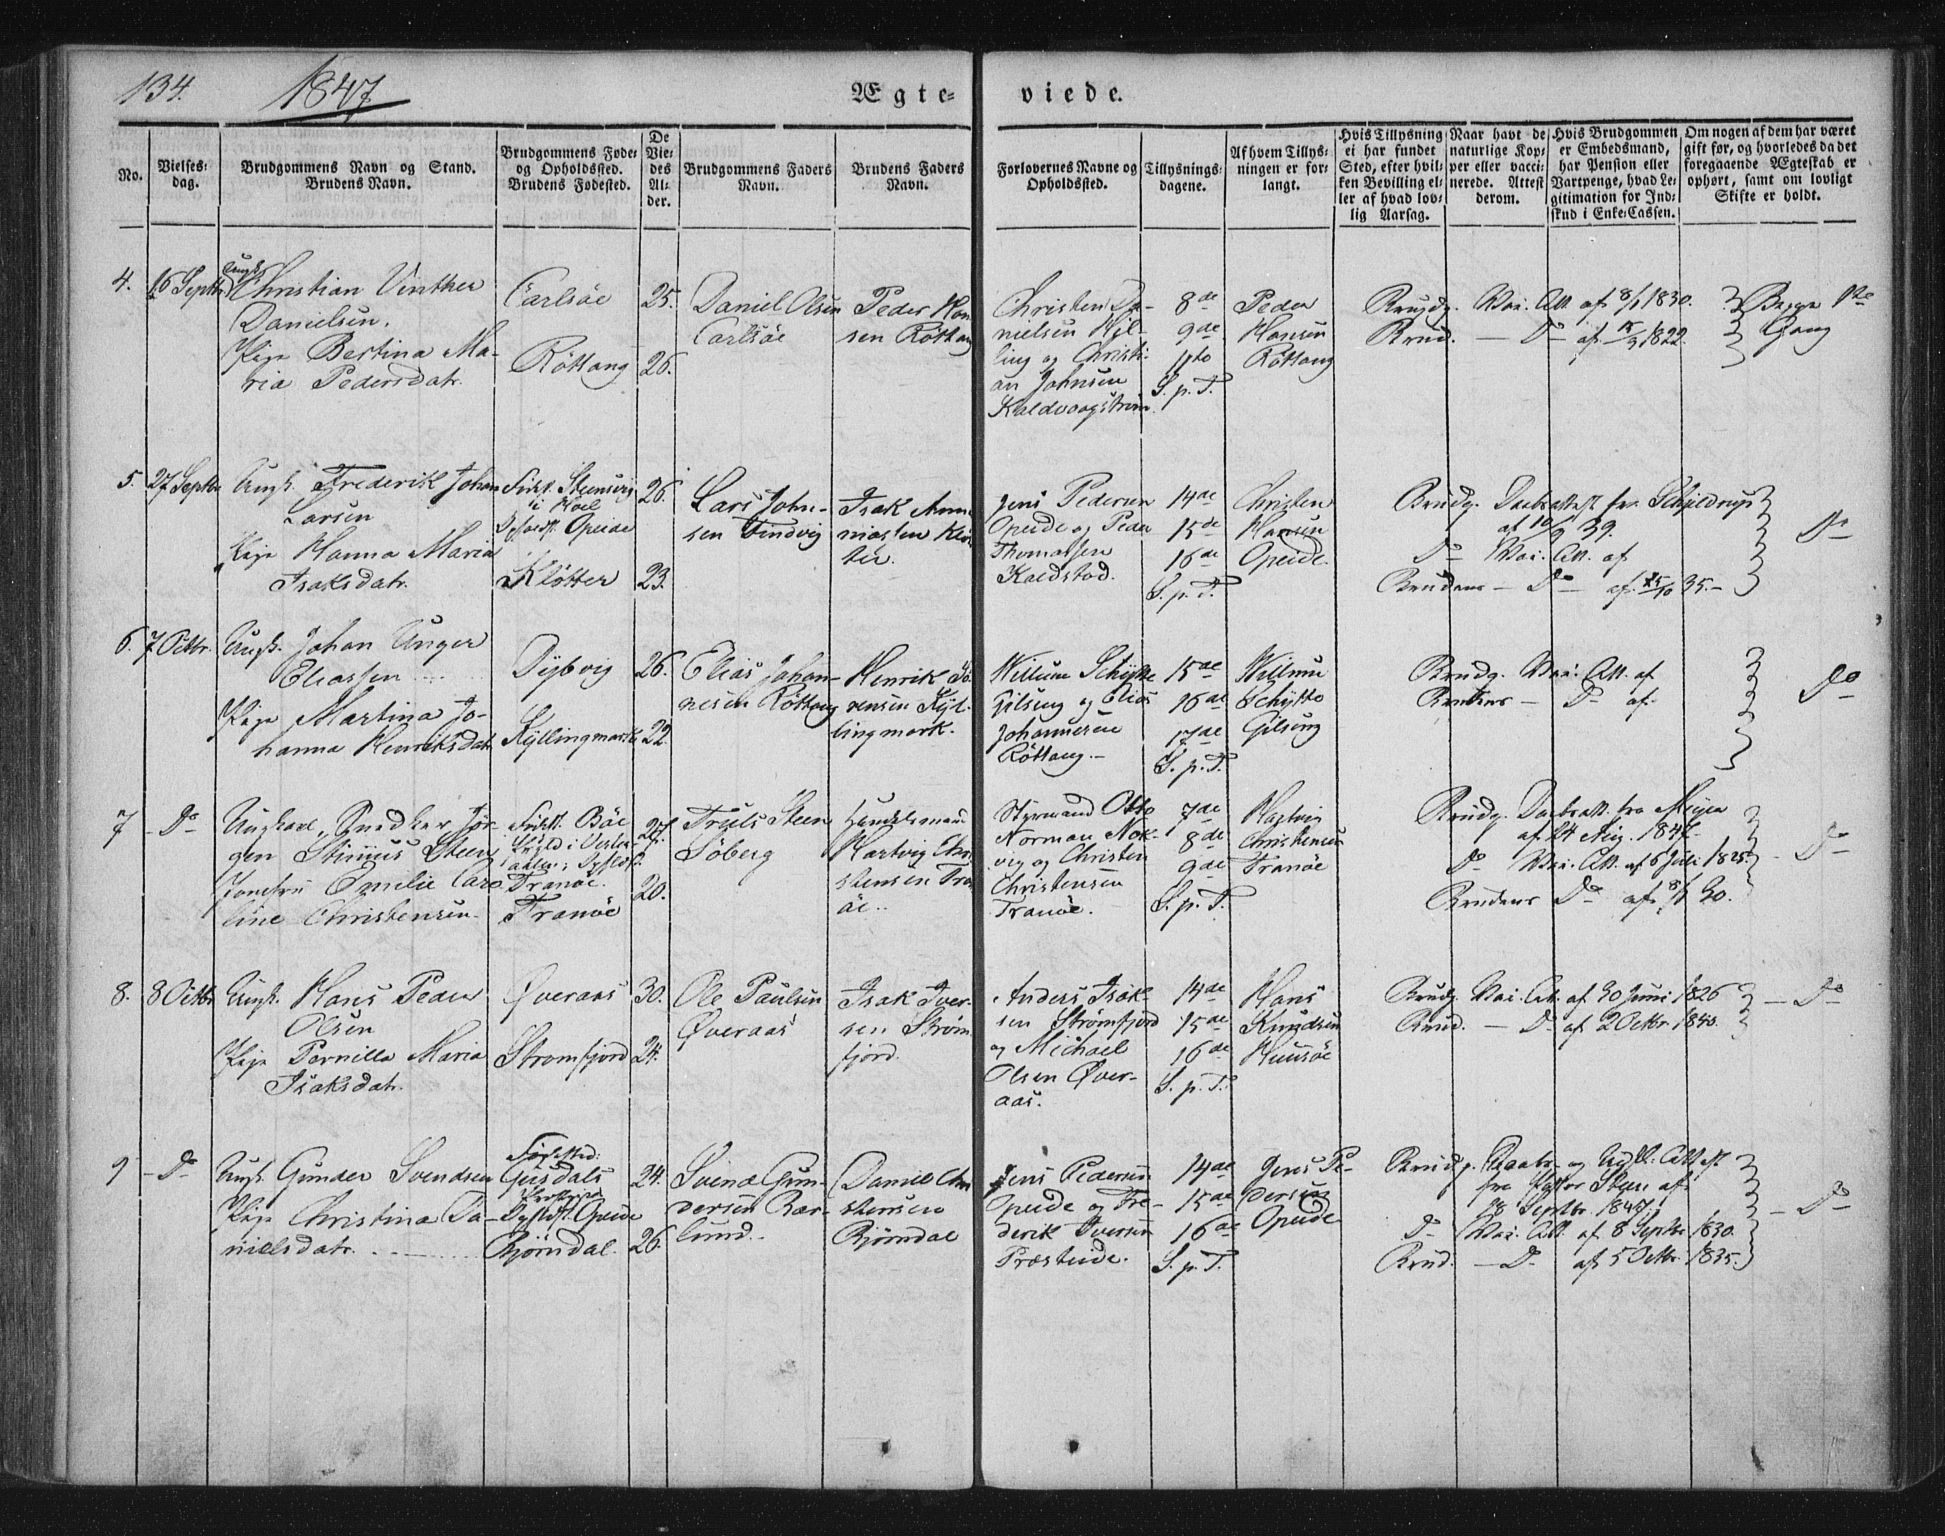 134.
1847
Ægte-
viede.
No.
Vielses-
dag.
Brudgommens Navn og Stand.
Brudens Navn.
Brudgommens Føde-
og Opholdssted.
Brudens Fødested.
De
Vie-
des
Al-
der.
Brudgommens Faders
Navn.
Brudens Faders
Navn.
Forlovernes Navne og
Opholdssted.
Tillysnings-
dagene.
Af hvem Tillys-
ningen er for-
langt.
Hvis Tillysning
ei har fundet
Sted, efter hvil-
ken Bevilling el-
ler af hvad lov-
lig Aarsag.
Naar havt de
naturlige Kop-
per eller vacci-
nerede. Attest
derom.
Hvis Brudgommen
er Embedsmand,
har Pension eller
Vartpenge, hvad Le-
gitimation for Ind-
skud i Enke-Cassen.
Om nogen af dem har været
gift før, og hvorledes da det
foregaaende Ægteskab er
ophørt, samt om lovligt
Skifte er holdt.
4.
16 Septbr
Ungk.
Christian Vinther
Danielsen.
Pige Bertina Ma-
ria Pedersdatr.
Carlsöe
Röttang
25.
26.
Daniel Olsen
Carlsöe
Peder Han-
sen Röttang
Christen Da-
nielsen Kjl-
ling og Christi-
an Johnsen
Kaldvaagstrøm.
8de
9de
11te
S. p. T.
Peder
Hansen
Röttang
Brudg. Vac. Att. af 8/9 1830.
Brud. — Do af 1822
Begge 1te
Gang
5.
27 Septbr
Ungk. Frederik Johan
Larsen
Pige Hanna Maria
Isaksdatr.
Födst. Steensvig
Opeide
Kløtter
26.
23.
Lars John-
sen Findvig
Isak Amu-
Christen
Hansen
Opeide.
Jens Pedersen
Opeide og Peder
Thomassen
Kaldstad.
14de
15de
16de
S. p. T.
Brudg. Daabsattest fra Skjeldrup
af 10/9 39.
Do Vac. Att. af
Brudens — Do — af 25/10 35.—
Do
6.
7 Octbr.
Ungk. Johan Unger
Eliassen
Pige Martina Jo-
hanna Henriksdatr
Dybvig
Kyllingmark
26.
22.
Elias Johan-
nesen Röttang
Henrik Sö-
rensen Kyl-
lingmark.
Willum Schytte
Gilsung og Elias
Johannesen
Röttang.—
15de
16de
17de
S. p. T.
Willum
Schytte
Gilsung
Brudg. Vac. Att. af
Brudens — Do af
Do
7
Do
Ungkarl, Snedker Jør-
gen Stinius Steen
Jomfru Emilie Caro
line Christensen.
Födst. Böe
Tranöe.
Tranöe
27.
20.
Truls Steen
Söberg
Handelsmand
Hartvig Chri
stensen Tran
öe.
Styrmand Otto
Norman Mok-
vig og Christen
Christensen
Tranöe.
7de
8de
9de
S. p. T.
Hartvig
Christensen
Tranöe
Brudg. Daabsatt. fra
af 24 Aug. 1847
Do Vac. Att. af 6 Juli 1825.
Brudens Do af 30.
Do
8.
8 Octbr
Ungk. Hans Peder
Olsen
Pige Pernilla Maria
Isaksdatr.
Øveraas
Strømfjord
30.
24.
Ole Paulsen
Øveraas
Isak Iver-
sen Strøm
fjord.
Anders Isak-
sen Strømfjord
og Michael
Olsen Øver-
aas.
14de
15de
16de
S. p. T.
Hans
Knudsen
Brudg. Vac. Att. af 30 Juni 1826
Brud. — Do af 2 Octbr. 1840.
— Do
9
— Do
Ungk. Gunder Svendsen
Pige Christina Da-
nielsdatr.
Födested:
Gusdals
Opeide
Björndal.
24.
26.
Svend Gun-
dersen Bær-
lund.
Daniel Chri
stensen
Björndal
Jens Pedersen
Opeide og Fre-
derik Iversen
Præsteide.
14de
15de
16de
S. p. T.
Jens Pe-
dersen
Opeide
Brudg. Daabs- og Attest
fra Pastor Steen af
18 Septbr. 1847.
Do Vac. Att. af 8 Septbr 1830.
Brud. — Do af 5 Octbr. 1835.
— Do